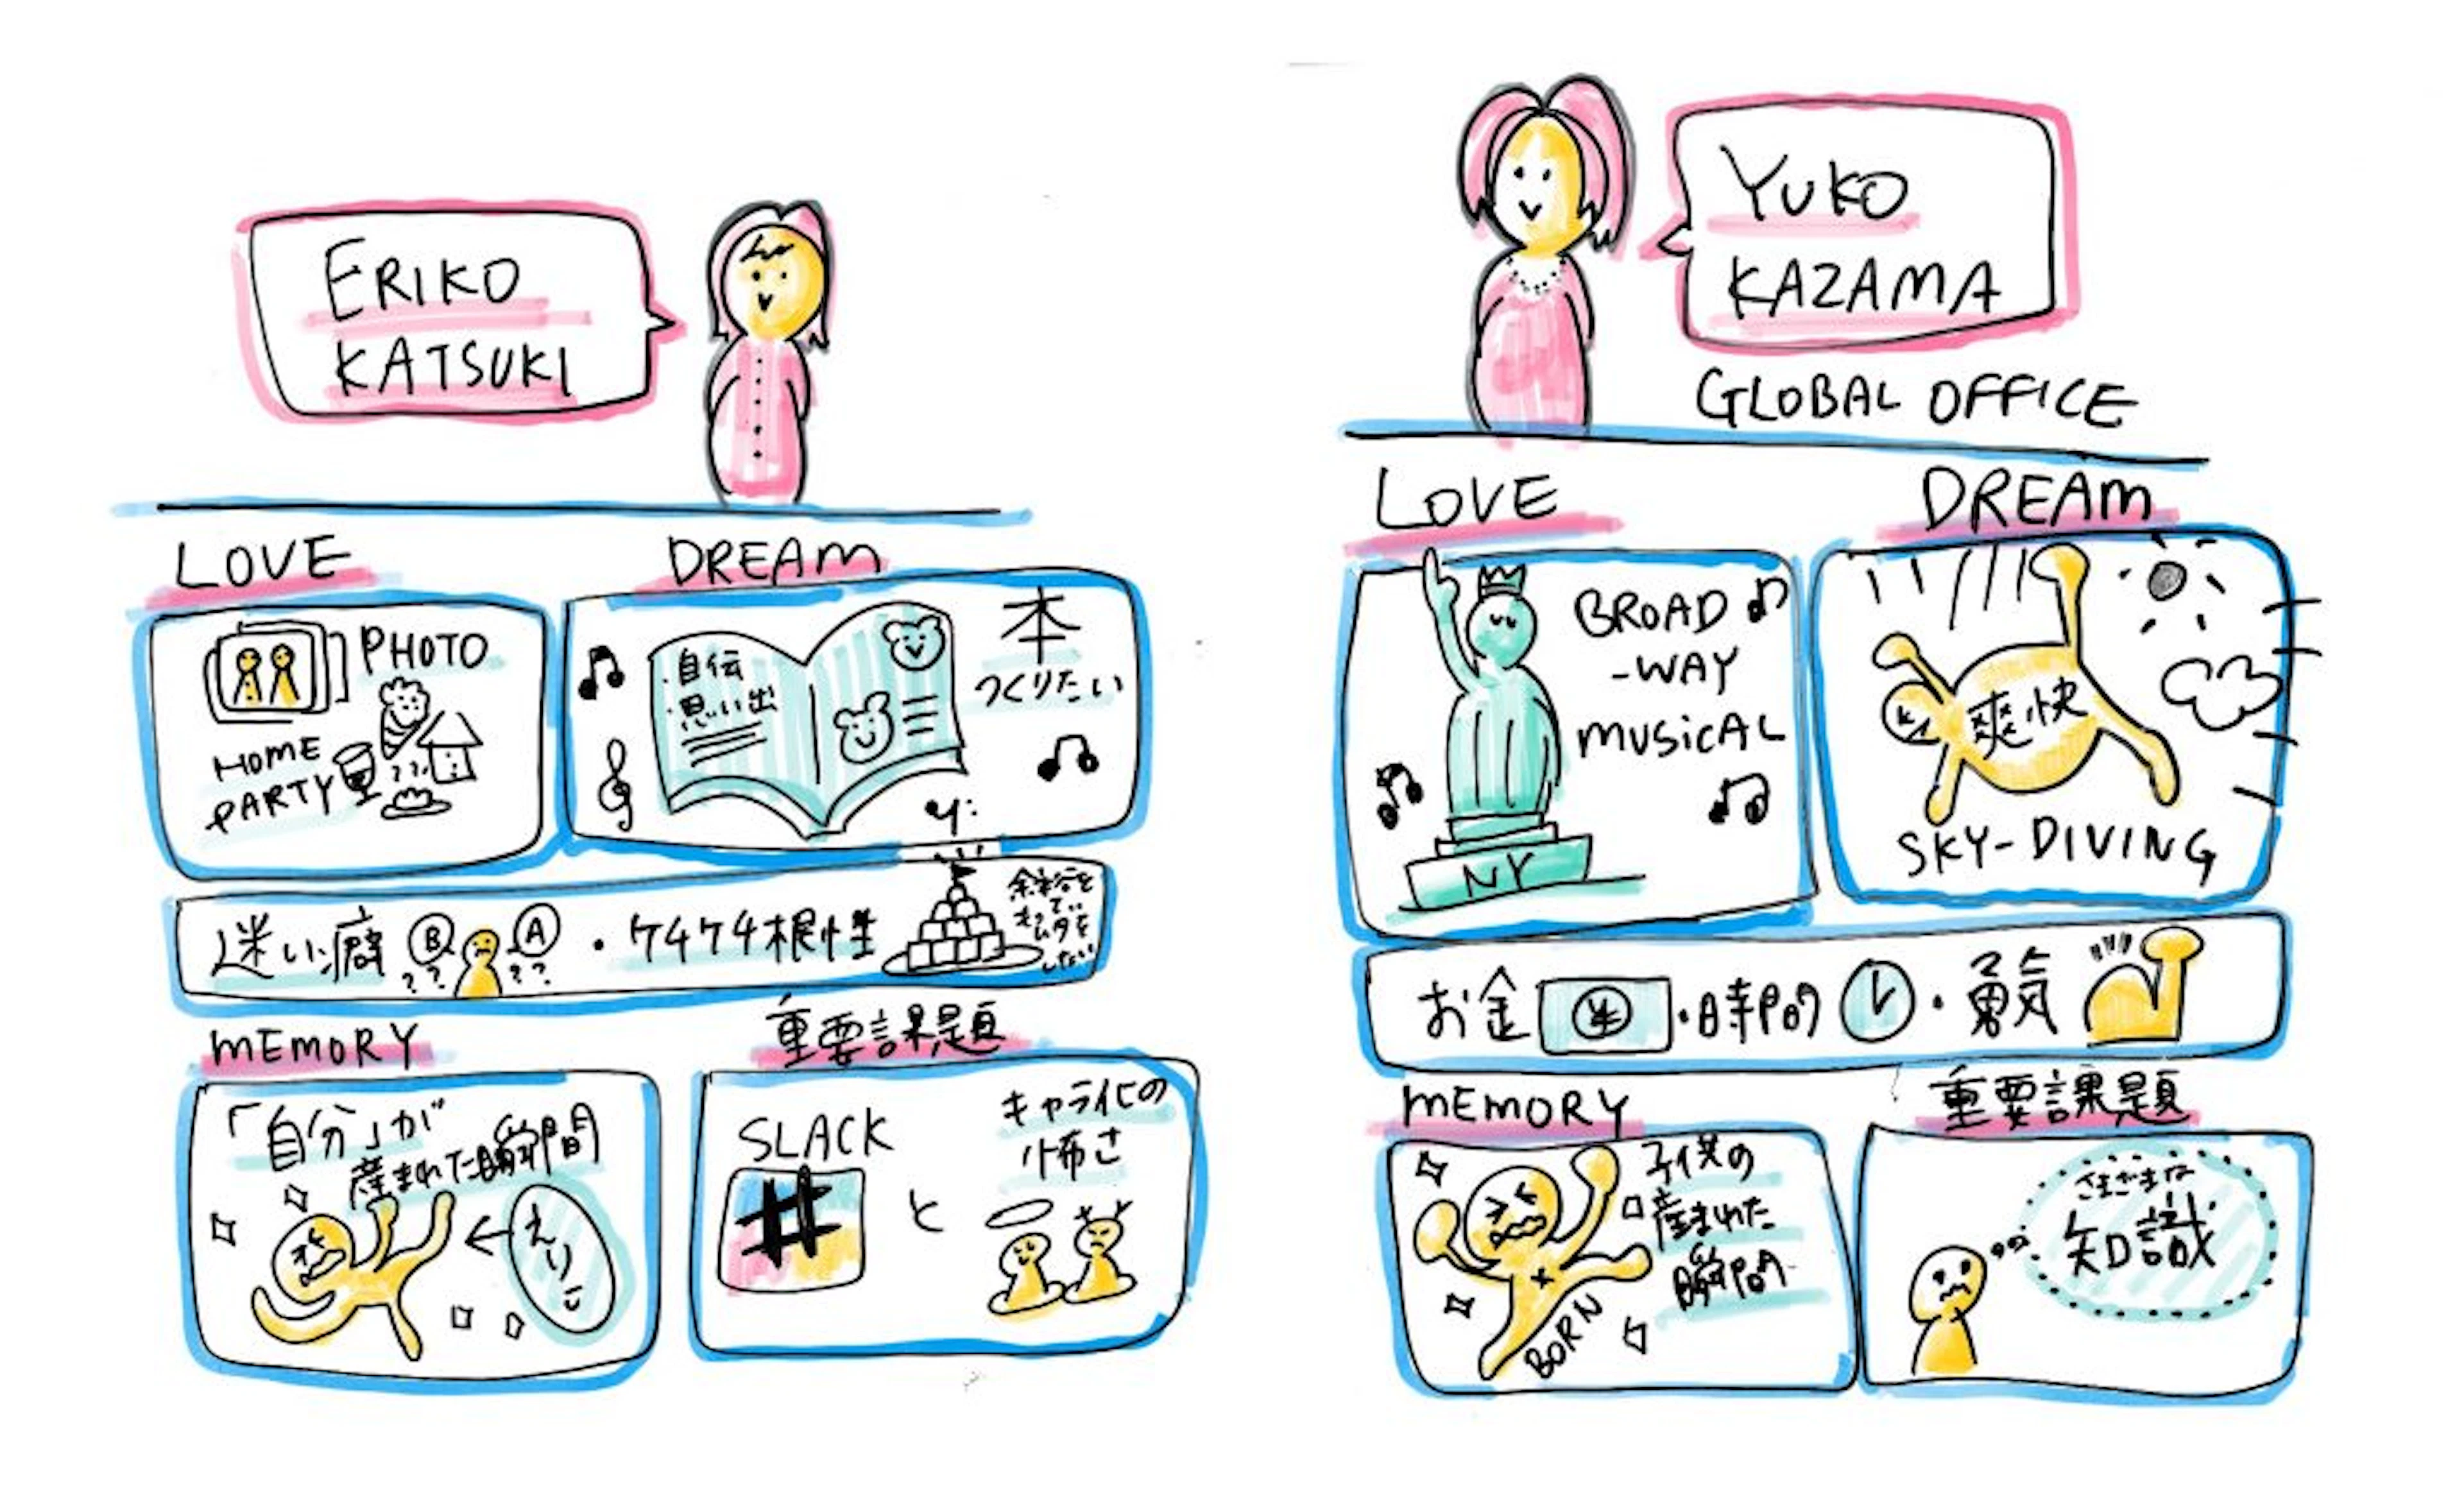 ERIKO
KATSUKI
LOVE
PHOTO
HOME
PARTY
DREAM
・自伝
・思い出
本
つくりたい
迷い癖
B
A
??
??
・ケチケチ根性
余裕を
もって
ムダを
しない
MEMORY
「自分」が
産まれた瞬間
えりこ
重要課題
SLACK
#
と
キャラ化の
怖さ
YUKO
KAZAMA
GLOBAL OFFICE
LOVE
BROAD
-WAY
MUSICAL
NY
DREAM
爽快
SKY-DIVING
お金 ¥ ・時間・勇気
MEMORY
子供の
産まれた
瞬間
BORN
重要課題
さまざまな
知識